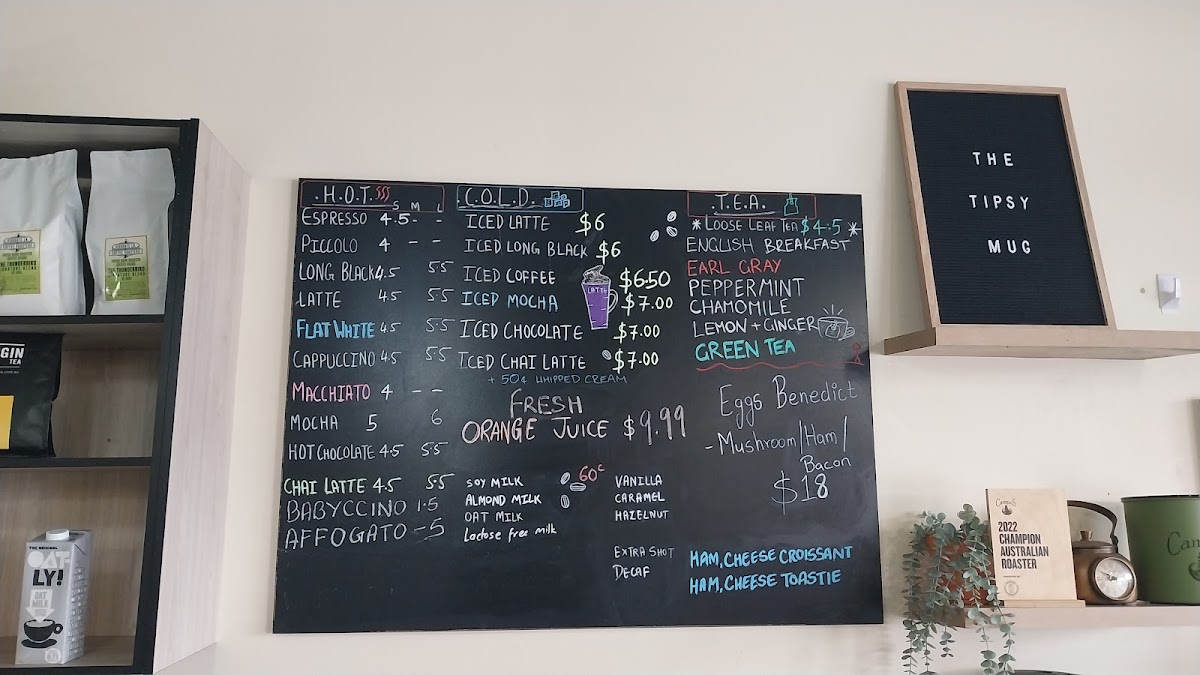 .H.O.T.
S M L
ESPRESSO 4.5 - -
PICCOLO 4 - -
LONG BLACK 4.5 5.5
LATTE 4.5 5.5
FLAT WHITE 4.5 5.5
CAPPUCCINO 4.5 5.5
MACCHIATO 4 - -
MOCHA 5 6
HOT CHOCOLATE 4.5 5.5
CHAI LATTE 4.5 5.5
BABYCCINO 1.5
AFFOGATO - 5
.C.O.L.D.
ICED LATTE $6
ICED LONG BLACK $6
ICED COFFEE $6.50
ICED MOCHA $7.00
ICED CHOCOLATE $7.00
ICED CHAI LATTE $7.00
+ 50¢ WHIPPED CREAM
LATTE
FRESH
ORANGE JUICE $9.99
SOY MILK 60c
ALMOND MILK
OAT MILK
Lactose free milk
VANILLA
CARAMEL
HAZELNUT
EXTRA SHOT
DECAF
.T.E.A.
* LOOSE LEAF TEA $4.5 *
ENGLISH BREAKFAST
EARL GRAY
PEPPERMINT
CHAMOMILE
LEMON + GINGER
GREEN TEA
Eggs Benedict
- Mushroom/Ham/
Bacon
$18
HAM, CHEESE CROISSANT
HAM, CHEESE TOASTIE
THE
TIPSY
MUG
2022
CHAMPION
AUSTRALIAN
ROASTER
GIN
TEA
OAT-
LY!
OAT
MILK